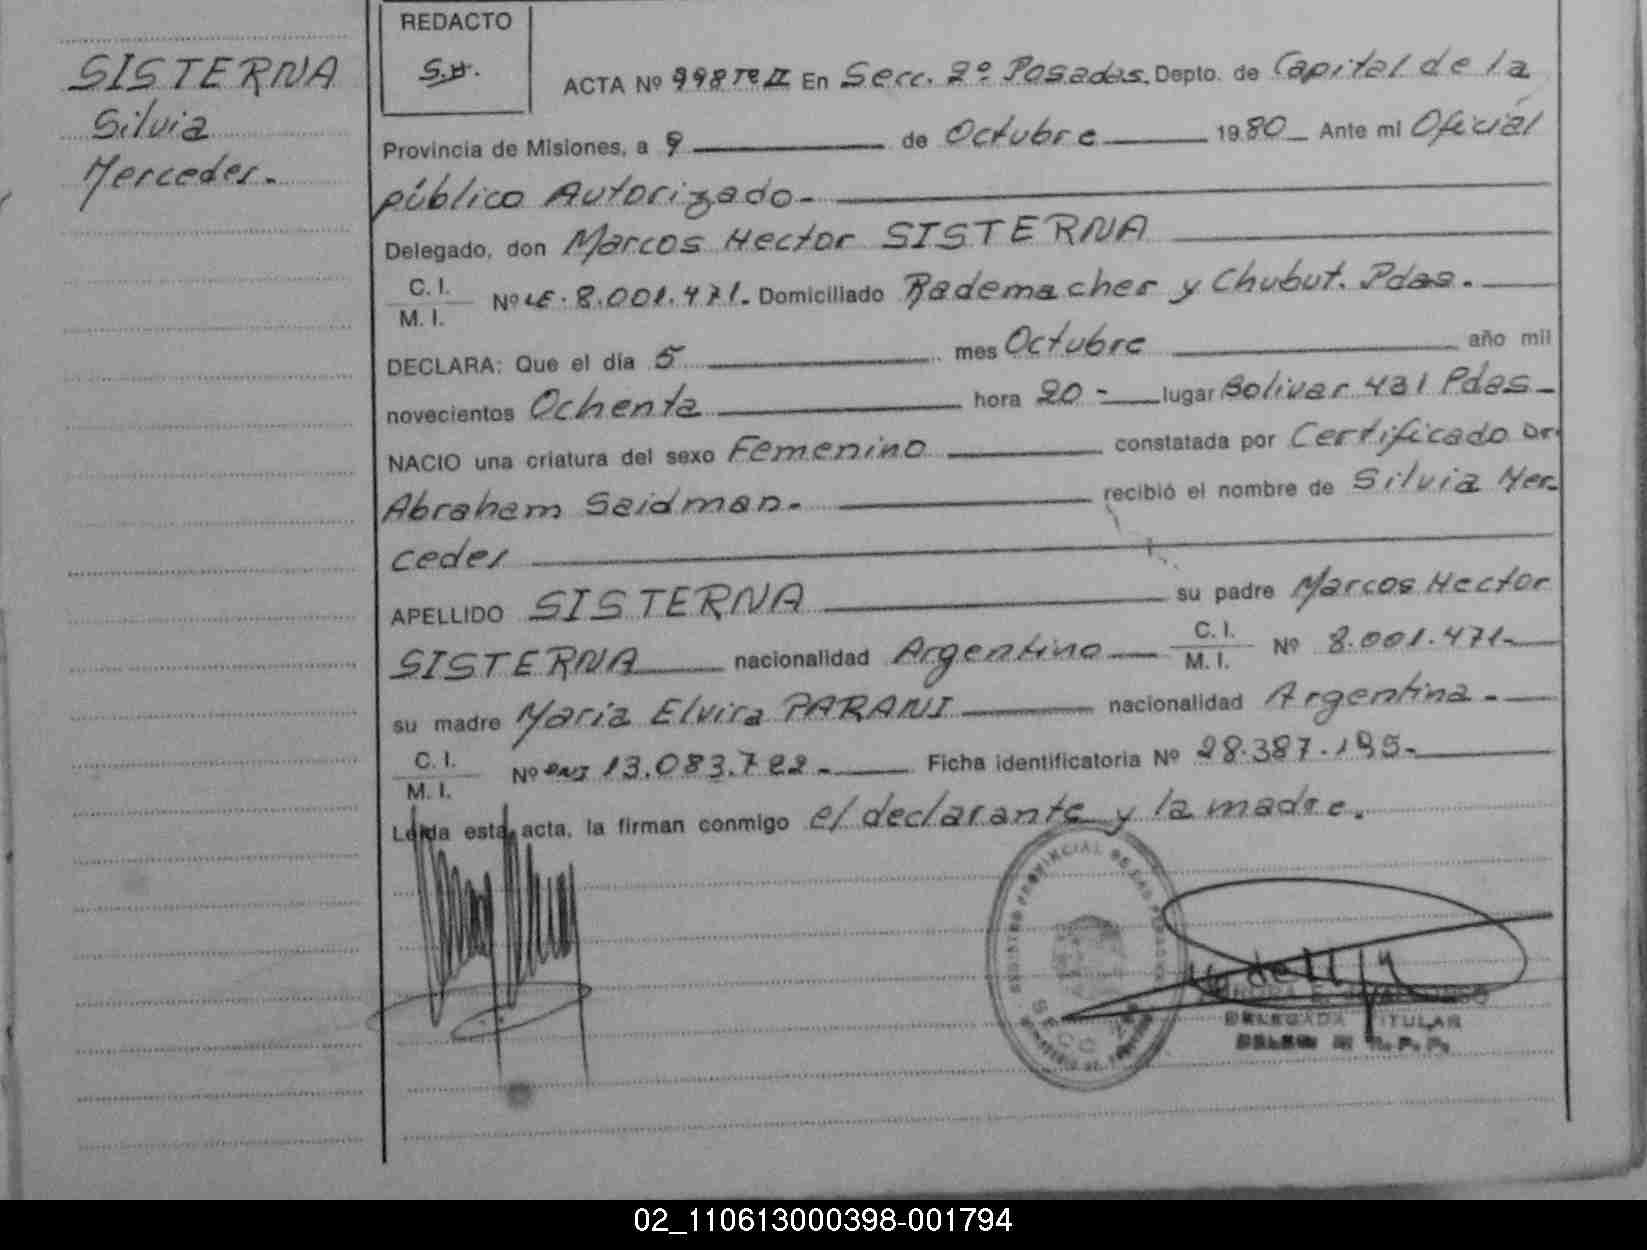 SISTERNA
Silvia
Mercedes.
REDACTO
S.H.
ACTA Nº 998 Tº II En Secc. 2º Posadas. Depto. de Capital de la
Provincia de Misiones, a 9 de Octubre 1980 Ante mi Oficial
público Autorizado.
Delegado, don Marcos Hector SISTERNA
C. I.
M. I.
Nº LE. 8.001.471. Domiciliado Rademacher y Chubut. Pdas.
DECLARA: Que el día 5 mes Octubre año mil
novecientos Ochenta hora 20 - lugar Bolivar 431 Pdas
NACIO una criatura del sexo Femenino constatada por Certificado Dr
Abraham Seidman. recibió el nombre de Silvia Mer-
cedes
APELLIDO SISTERNA su padre Marcos Hector
SISTERNA nacionalidad Argentino C. I. M. I. Nº 8.001.471-
su madre Maria Elvira PARANI nacionalidad Argentina -
C. I.
M. I.
Nº DNI 13.083.722 - Ficha identificatoria Nº 28.387.195-
Leída esta acta, la firman conmigo el declarante y la madre.
REGISTRO PROVINCIAL DE LAS PERSONAS
SECC
DELEGADA TITULAR
R. P. P.
02_110613000398-001794